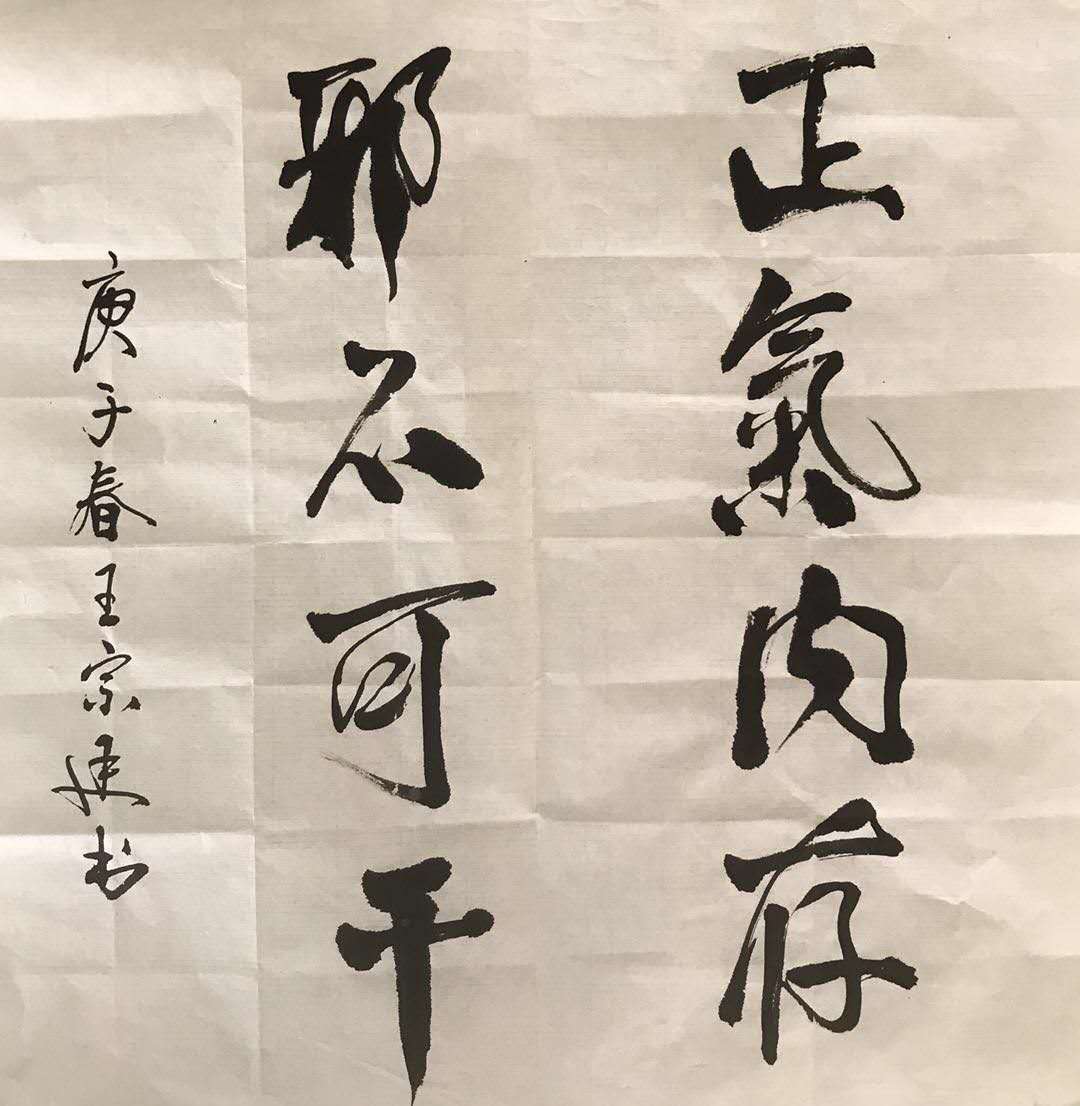 正氣内存
邪不可干
庚子春王宗建书